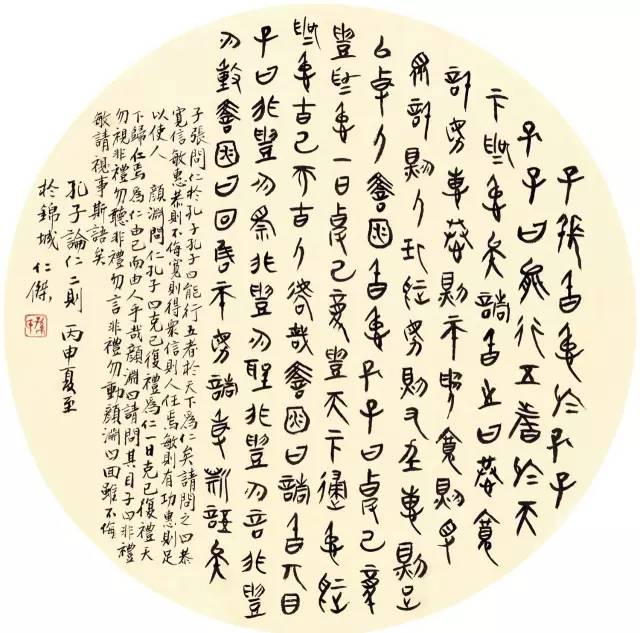 子張問仁於孔子
孔子曰能行五者於天
下為仁矣請問之曰恭寬
信敏惠恭則不侮寬則得
眾信則人任焉敏則有功惠則足
以使人顏淵問仁孔子曰克己復
禮為仁一日克己復禮天下歸仁焉
為仁由己而由人乎哉顏淵曰請問其目
子曰非禮勿視非禮勿聽非禮勿言非禮
勿動顏淵曰回雖不敏請事斯語矣
子張問仁於孔子孔子曰能行五者於天下為仁矣請問之曰恭
寬信敏惠恭則不侮寬則得眾信則人任焉敏則有功惠則足
以使人 顏淵問仁孔子曰克己復禮為仁一日克己復禮天
下歸仁焉為仁由己而由人乎哉顏淵曰請問其目子曰非禮
勿視非禮勿聽非禮勿言非禮勿動顏淵曰回雖不侮
敏請視事斯語矣
孔子論仁二則 丙申夏至
於錦城 仁傑